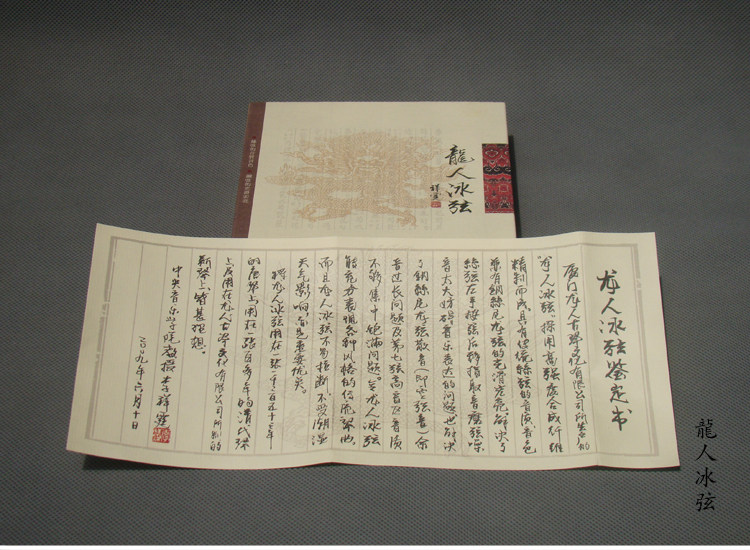 龍人冰弦
祥霆
龙人冰弦鉴定书
厦门龙人古琴文化有限公司所生产的
"龙人冰弦"採用高强度合成纤维
精制而成具有传统絲弦的音质音色
兼有鋼絲尼龙弦的光滑发亮解决了
絲弦左手按弦后移指取音磨弦噪
音太大妨碍音乐表达的问题也解决
了鋼絲尼龙弦散音(即空弦音)余
音过长问题及第七弦高音区音质
不够集中饱满问题。会龙人冰弦
能充分表现各种风格的传统琴曲。
而且龙人冰弦不易撞断不受潮湿
天气影响尚是重要优点。
將龙人冰弦用在一张一千二百五十三年
的唐琴上用在一张二百多年的清代琴
上及用在龙人古琴文化有限公司所制的
新琴上皆甚理想。
中央音乐学院教授 李祥霆
二〇〇九年六月十日
龍人冰弦